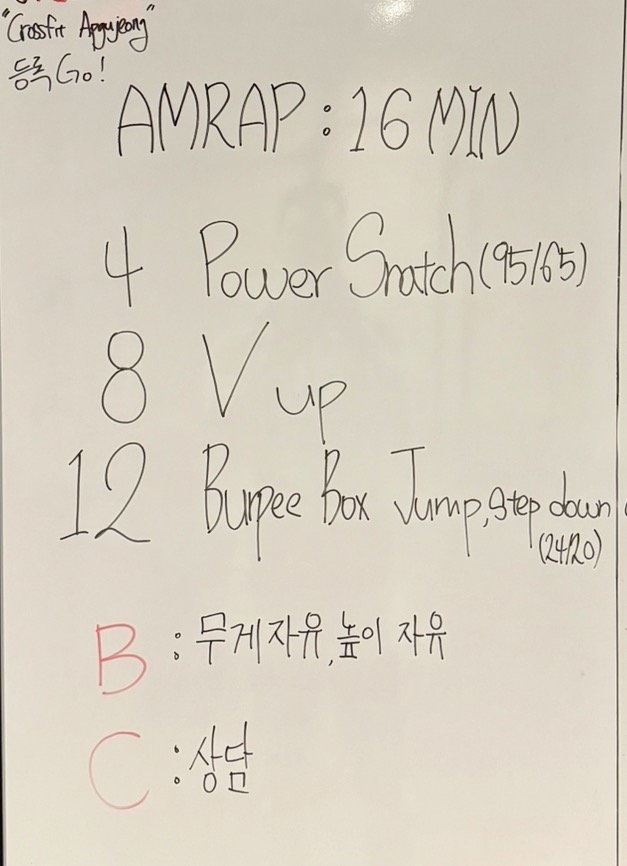 "Crossfit Apgujeong"
등록 Go!
AMRAP : 16 MIN
4 Power Snatch (95/65)
8 V up
12 Burpee Box Jump, Step down
(24/20)
B : 무게 자유, 높이 자유
C : 상담